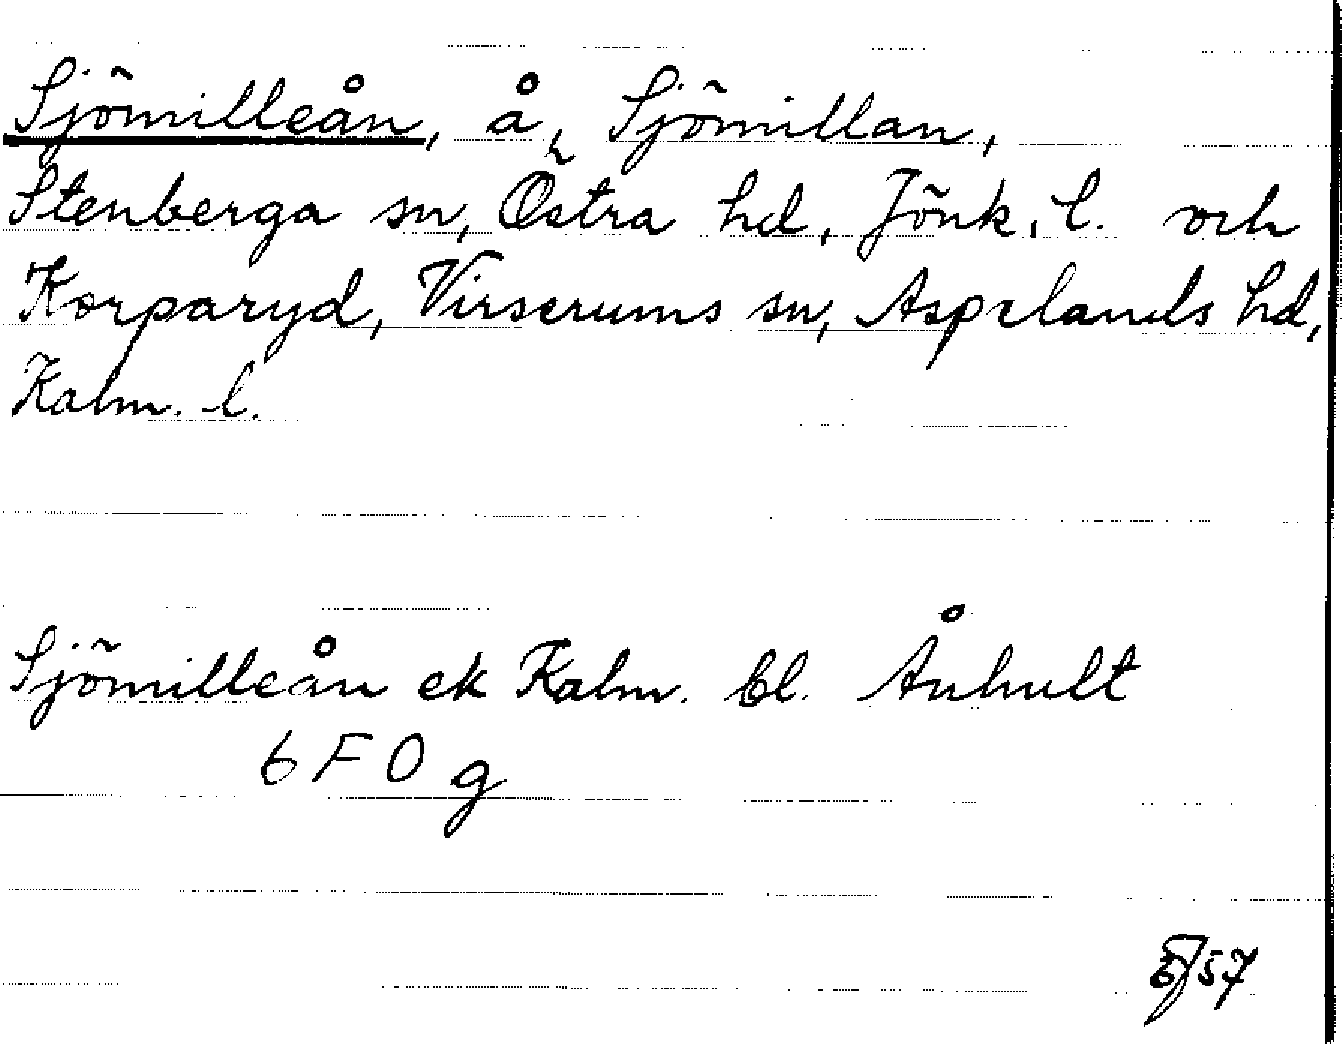 Sjömilleån, å, Sjömillan,
Stenberga sn, Östra hd, Jönk. l. och
Korparyd, Virserums sn, Aspelands hd,
Kalm. l.
Sjömilleån ek Kalm. bl. Ånhult
6 F 0 g
57